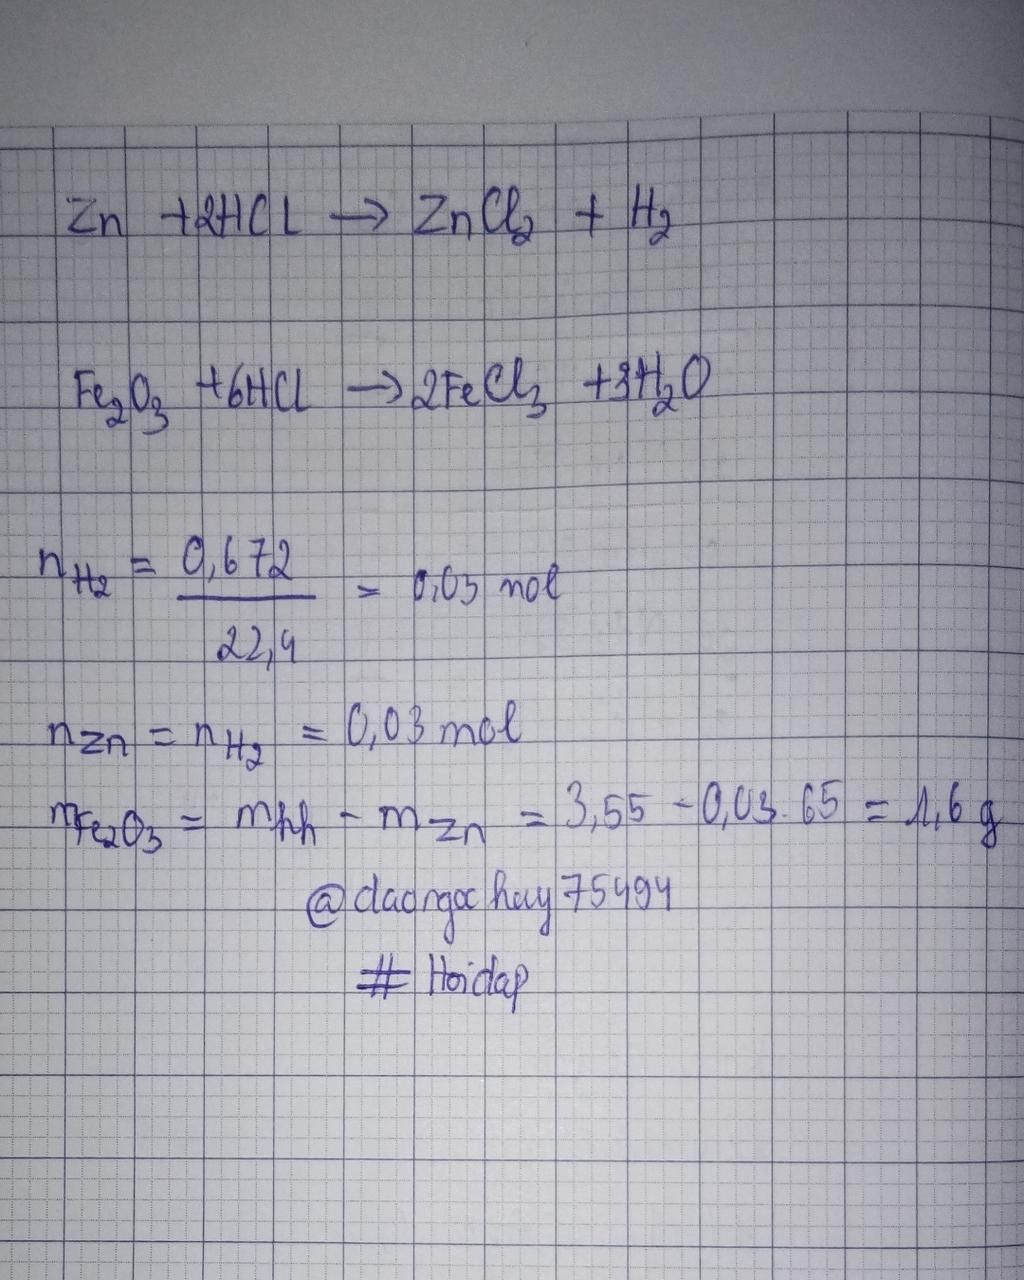 Zn + 2HCl → ZnCl₂ + H₂
Fe₂O₃ + 6HCl → 2FeCl₃ + 3H₂O
n_H₂ = 0,672 / 22,4 = 0,03 mol
n_Zn = n_H₂ = 0,03 mol
m_Fe₂O₃ = mhh - m_Zn = 3,55 - 0,03.65 = 1,6 g
@daongochuy75494
# Hoidap